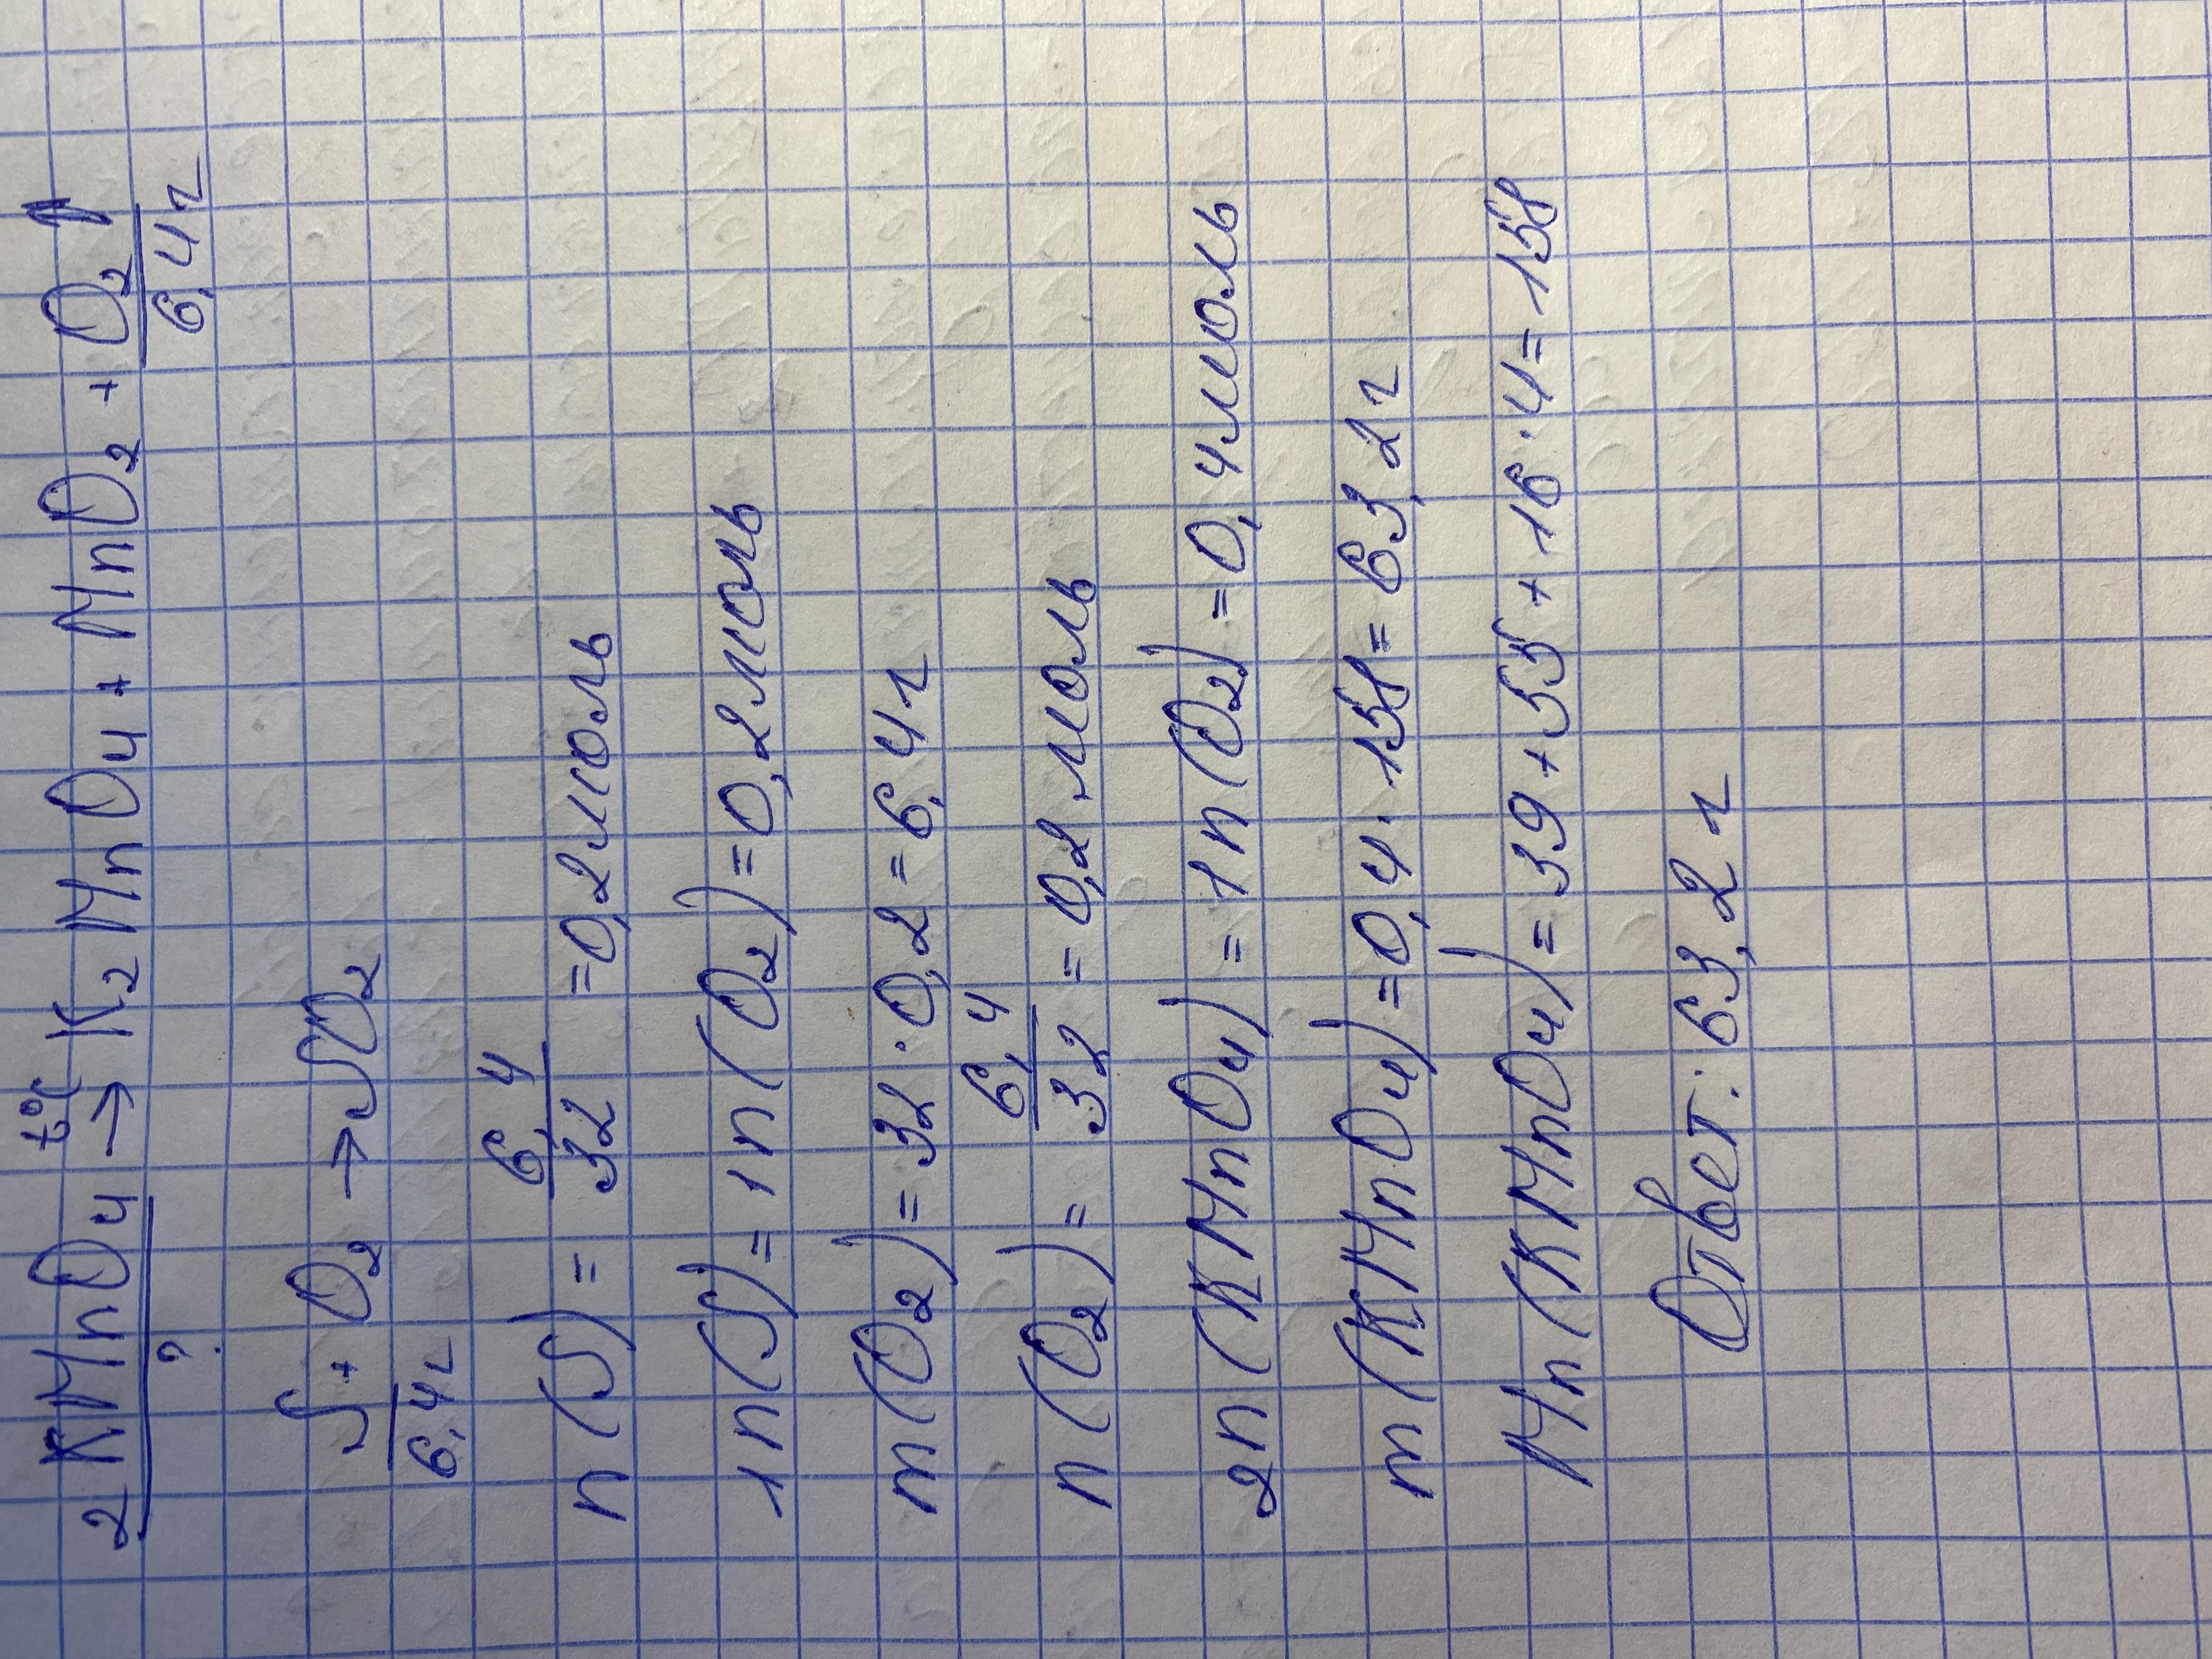 2KMnO4 t°C → K2MnO4 + MnO2 + O2↑
? 6,4г
S + O2 → SO2
6,4г
n(S) = 6,4/32 = 0,2моль
1n(S) = 1n(O2) = 0,2моль
m(O2) = 32 · 0,2 = 6,4г
n(O2) = 6,4/32 = 0,2 моль
2n(KMnO4) = 1n(O2) = 0,4моль
m(KMnO4) = 0,4 · 158 = 63,2г
Mn(KMnO4) = 39 + 55 + 16 · 4 = 158
Ответ: 63,2г